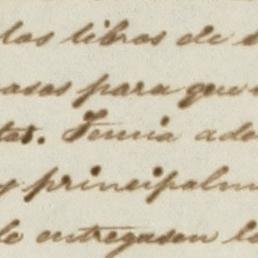 los libros de
asos para que
tas. Temia ade
y principalm
le entregasen l